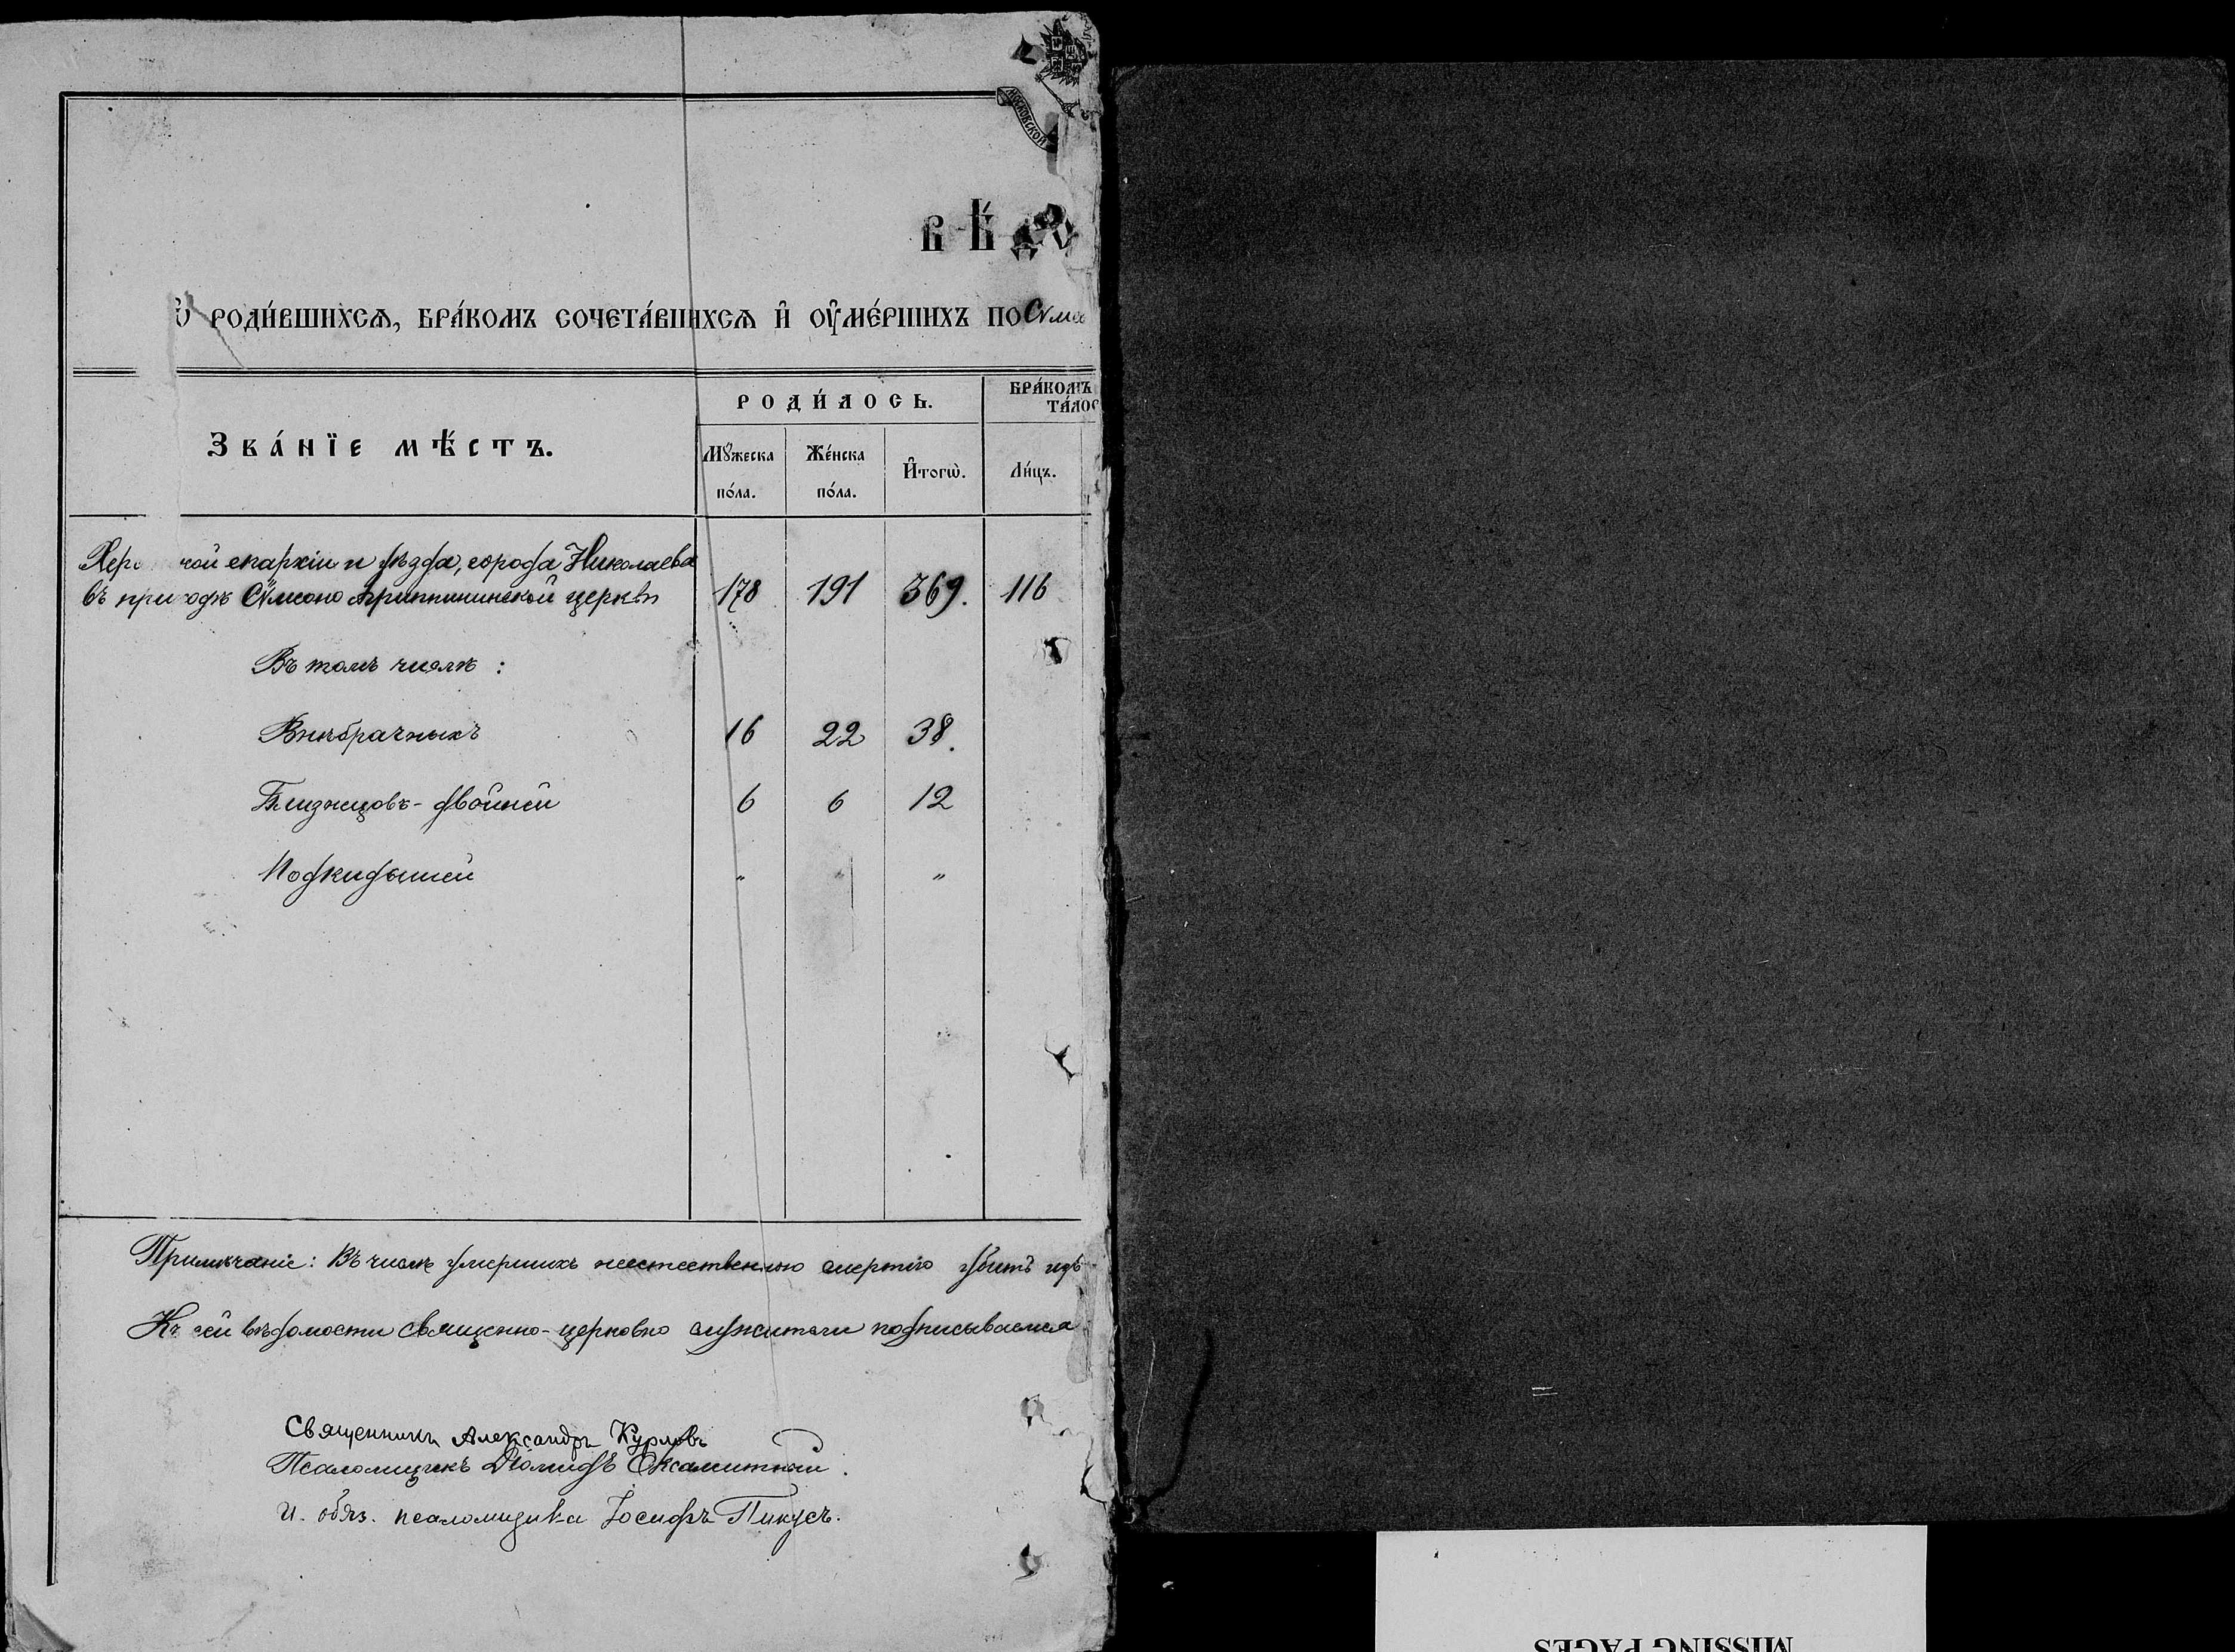 МОСКОВСКОЙ
ВѢ́ДО
Ѡ҆ РОДИ́ВШИХСѦ, БРА́КОМЪ СОЧЕТА́ВШИХСѦ И҆ ОУ҆МЕ́РШИХЪ ПО Сѵмео
Зва́нїе мѣ́стъ.
РОДИ́ЛОСЬ.
БРА́КОМЪ
ТА́ЛОС
Мꙋ́жеска по́ла.
Же́нска по́ла.
И҆тогѡ̀.
Ли́цъ.
Херс кой епархіи и уѣзда, города Николаева
въ приходѣ Сѵмеоно Агриппининской церкви 178 191 369. 116
Въ томъ числѣ:
Внѣбрачныхъ 16 22 38.
Близнецовъ - двойней 6 6 12
Подкидышей " " "
Примѣчаніе: Въ числѣ умершихъ неестественною смертію убитъ
Къ сей вѣдомости священно-церковно служители подписываемся
Священникъ Александръ Курловъ
Псаломщикъ Діомидъ Оксамитный.
И. обяз. псаломщика Іосифъ Пикусъ.
MISSING PAGES